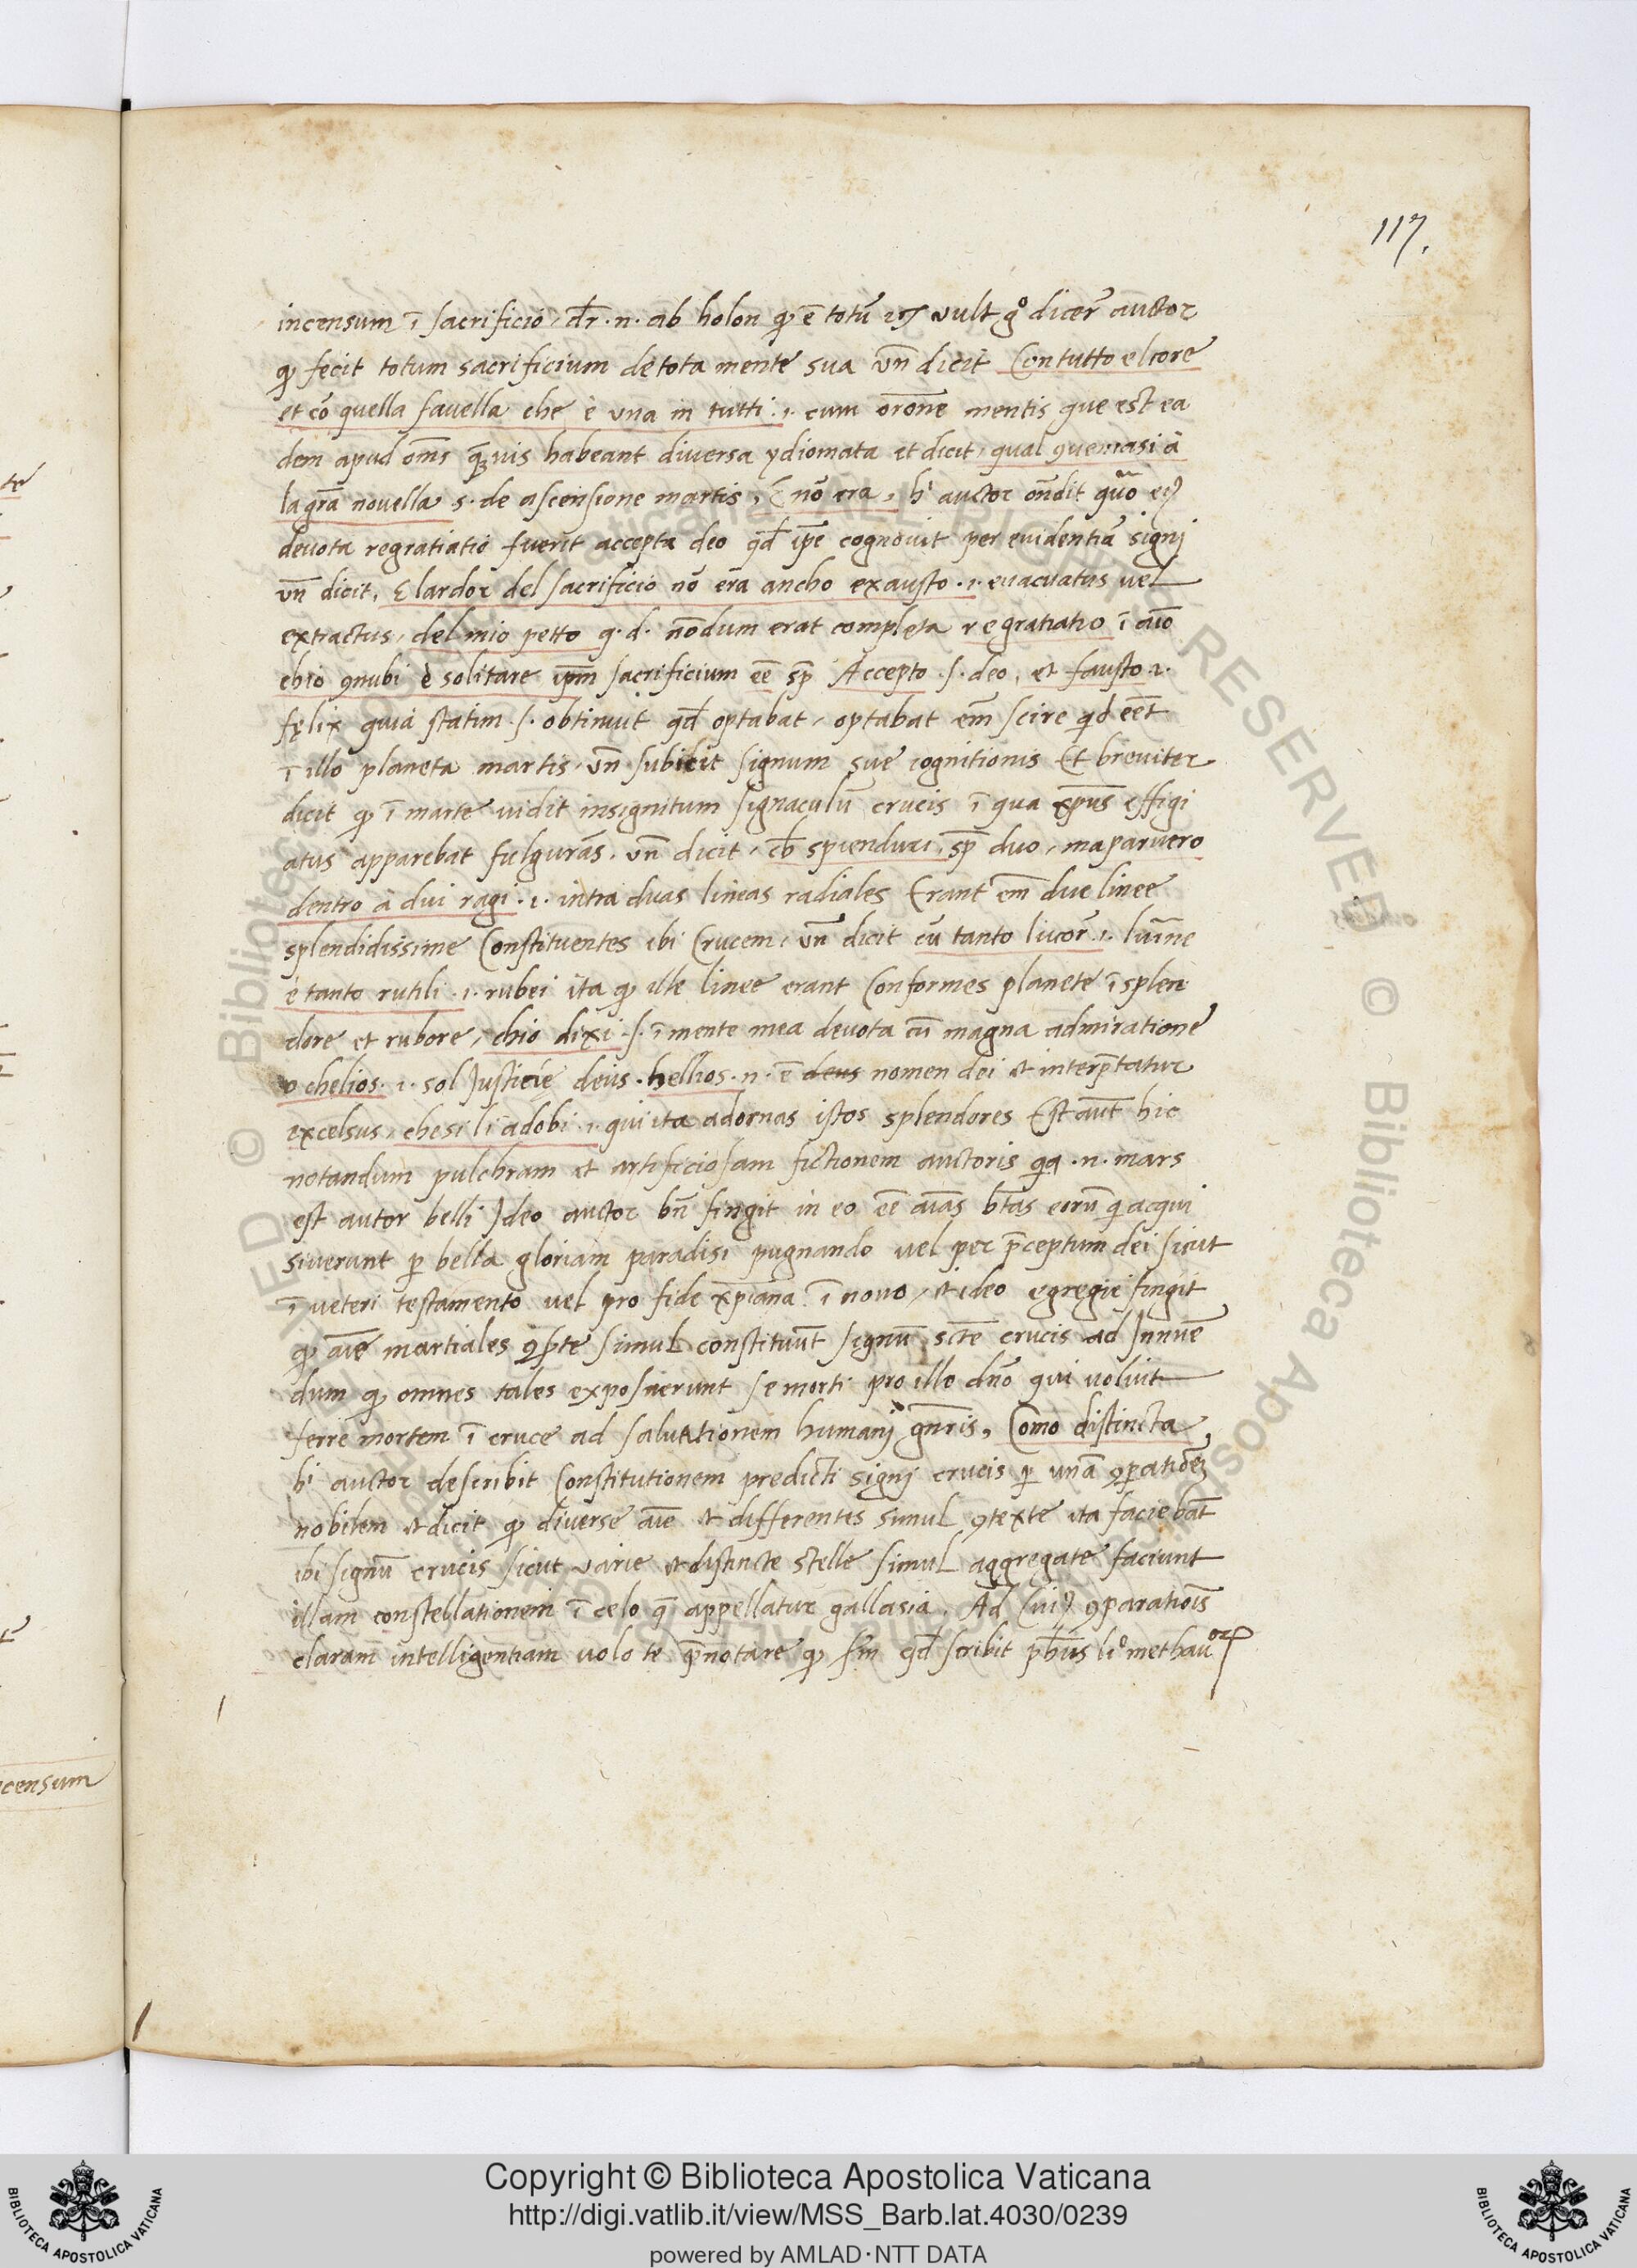 117.
incensum ĩ sacrificio, dr̃ .n. ab holon qɜ ẽ totũ vult gͦ dicer̃ auctor
qɜ fecit totum sacrificium de tota mente sua vñ dicit Con tutto el core
et cõ quella favella che è una in tutti .i. cum orõne mentis que est ea
dem apud oms̃ q̃vis habeant diversa ydiomata et dicit, qual 9venìasi à
la gr̃a novella s. de ascensione martis, E nõ era, hi auctor oñdit quõ eiꝰ
devota regratiatio fuerit accepta deo qd̃ ip̃e cognovit per evidentiã signj
vñ dicit, E lardor del sacrificio nõ era ancho exausto .i. evacuatus vel
extractus, del mio petto q.d. nõdum erat completa regratiatio ĩ aĩo
chio 9nubi è solitare ip̃m sacrificium eẽ sp̃ Accepto .s. deo, et fausto .i.
fęlix quia statim .s. obtinuit qd̃ optabat, optabat em̃ scire qd eẽt
ĩ illo planeta martis, vñ subicit signum sue cognitionis Et breviter
dicit qɜ ĩ marte vidit insignitum signaculũ crucis ĩ qua xp̃us effigi
atus apparebat fulgurãs. vñ dicit, ch̃ splenduri, sp̃ duo, maparvero
dentro à dui ragi .i. intra duas lineas radiales Erant em̃ due linee
splendidissime Constituentes ibi Crucem, vñ dicit cũ tanto lucor̃ .i. lum̃ne
è tanto rutili .i. rubei ita qɜ ille linee erant Conformes planete ĩ splen
dore et rubore, chio dixi .s. ĩ mente mea devota cũ magna admiratione
o chelios .i. sol Justicie deus. hellios .n. ẽ deus nomen dei et interp̃tatur
excelsus, chesi li adobi .i. qui ita adornas istos splendores Est aut̃ hic
notandum pulchram et artificiosam fictionem auctoris qa .n. mars
est autor belli Jdeo auctor bñ fingit in eo eẽ aĩas bt̃as eorũ qi acqui
siverunt p bella gloriam paradisi pugnando vel per p̃ceptum dei sicut
ĩ veteri testamento vel pro fide xp̃iana ĩ novo, et ideo egregie fingit
qɜ aĩe martiales simul constituũt signũ sct̃e crucis ad Jnnuẽ
dum qɜ omnes tales exposuerunt se morti pro illo dño qui voluit
ferre mortem ĩ cruce ad salvationem humanj gñris, Como distincta,
hi auctor describit Constitutionem predicti signj crucis p unã 9paratiõeʒ
nobilem et dicit qɜ diverse aĩe et differentes simul 9texte ita faciebãt
ibi signũ crucis sicut varie et distincte stelle simul aggregate faciunt
illam constellationem ĩ celo q̃ appellatur gallasia. Ad huiꝰ 9parationĩs
claram intelligentiam volo te p̃notare qɜ sm̃ qd̃ scribit ph̃us liͦ methauorꝝ
ncensum
Copyright © Biblioteca Apostolica Vaticana
http://digi.vatlib.it/view/MSS_Barb.lat.4030/0239
powered by AMLAD·NTT DATA
BIBLIOTECA APOSTOLICA VATICANA
BIBLIOTECA APOSTOLICA VATICANA